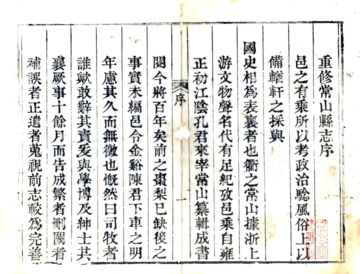 重修常山縣志序
邑之有乘所以考政治騐風俗上以
備輶軒之採與
國史相爲表裏者也衢之常山據浙上
游文物聲名代有足紀故邑乘自雍
正初江陰孔君來宰常山纂輯成書
序
閱今將百年矣前之棗梨已缺後之
事實未編邑令金谿陳君下車之明
年慮其久而無徵也慨然曰司牧者
誰歟敢辭其責爰與學博及紳士共
襄厥事十餘月而告成繁者刪闕者
補誤者正遺者蒐視前志較爲完善